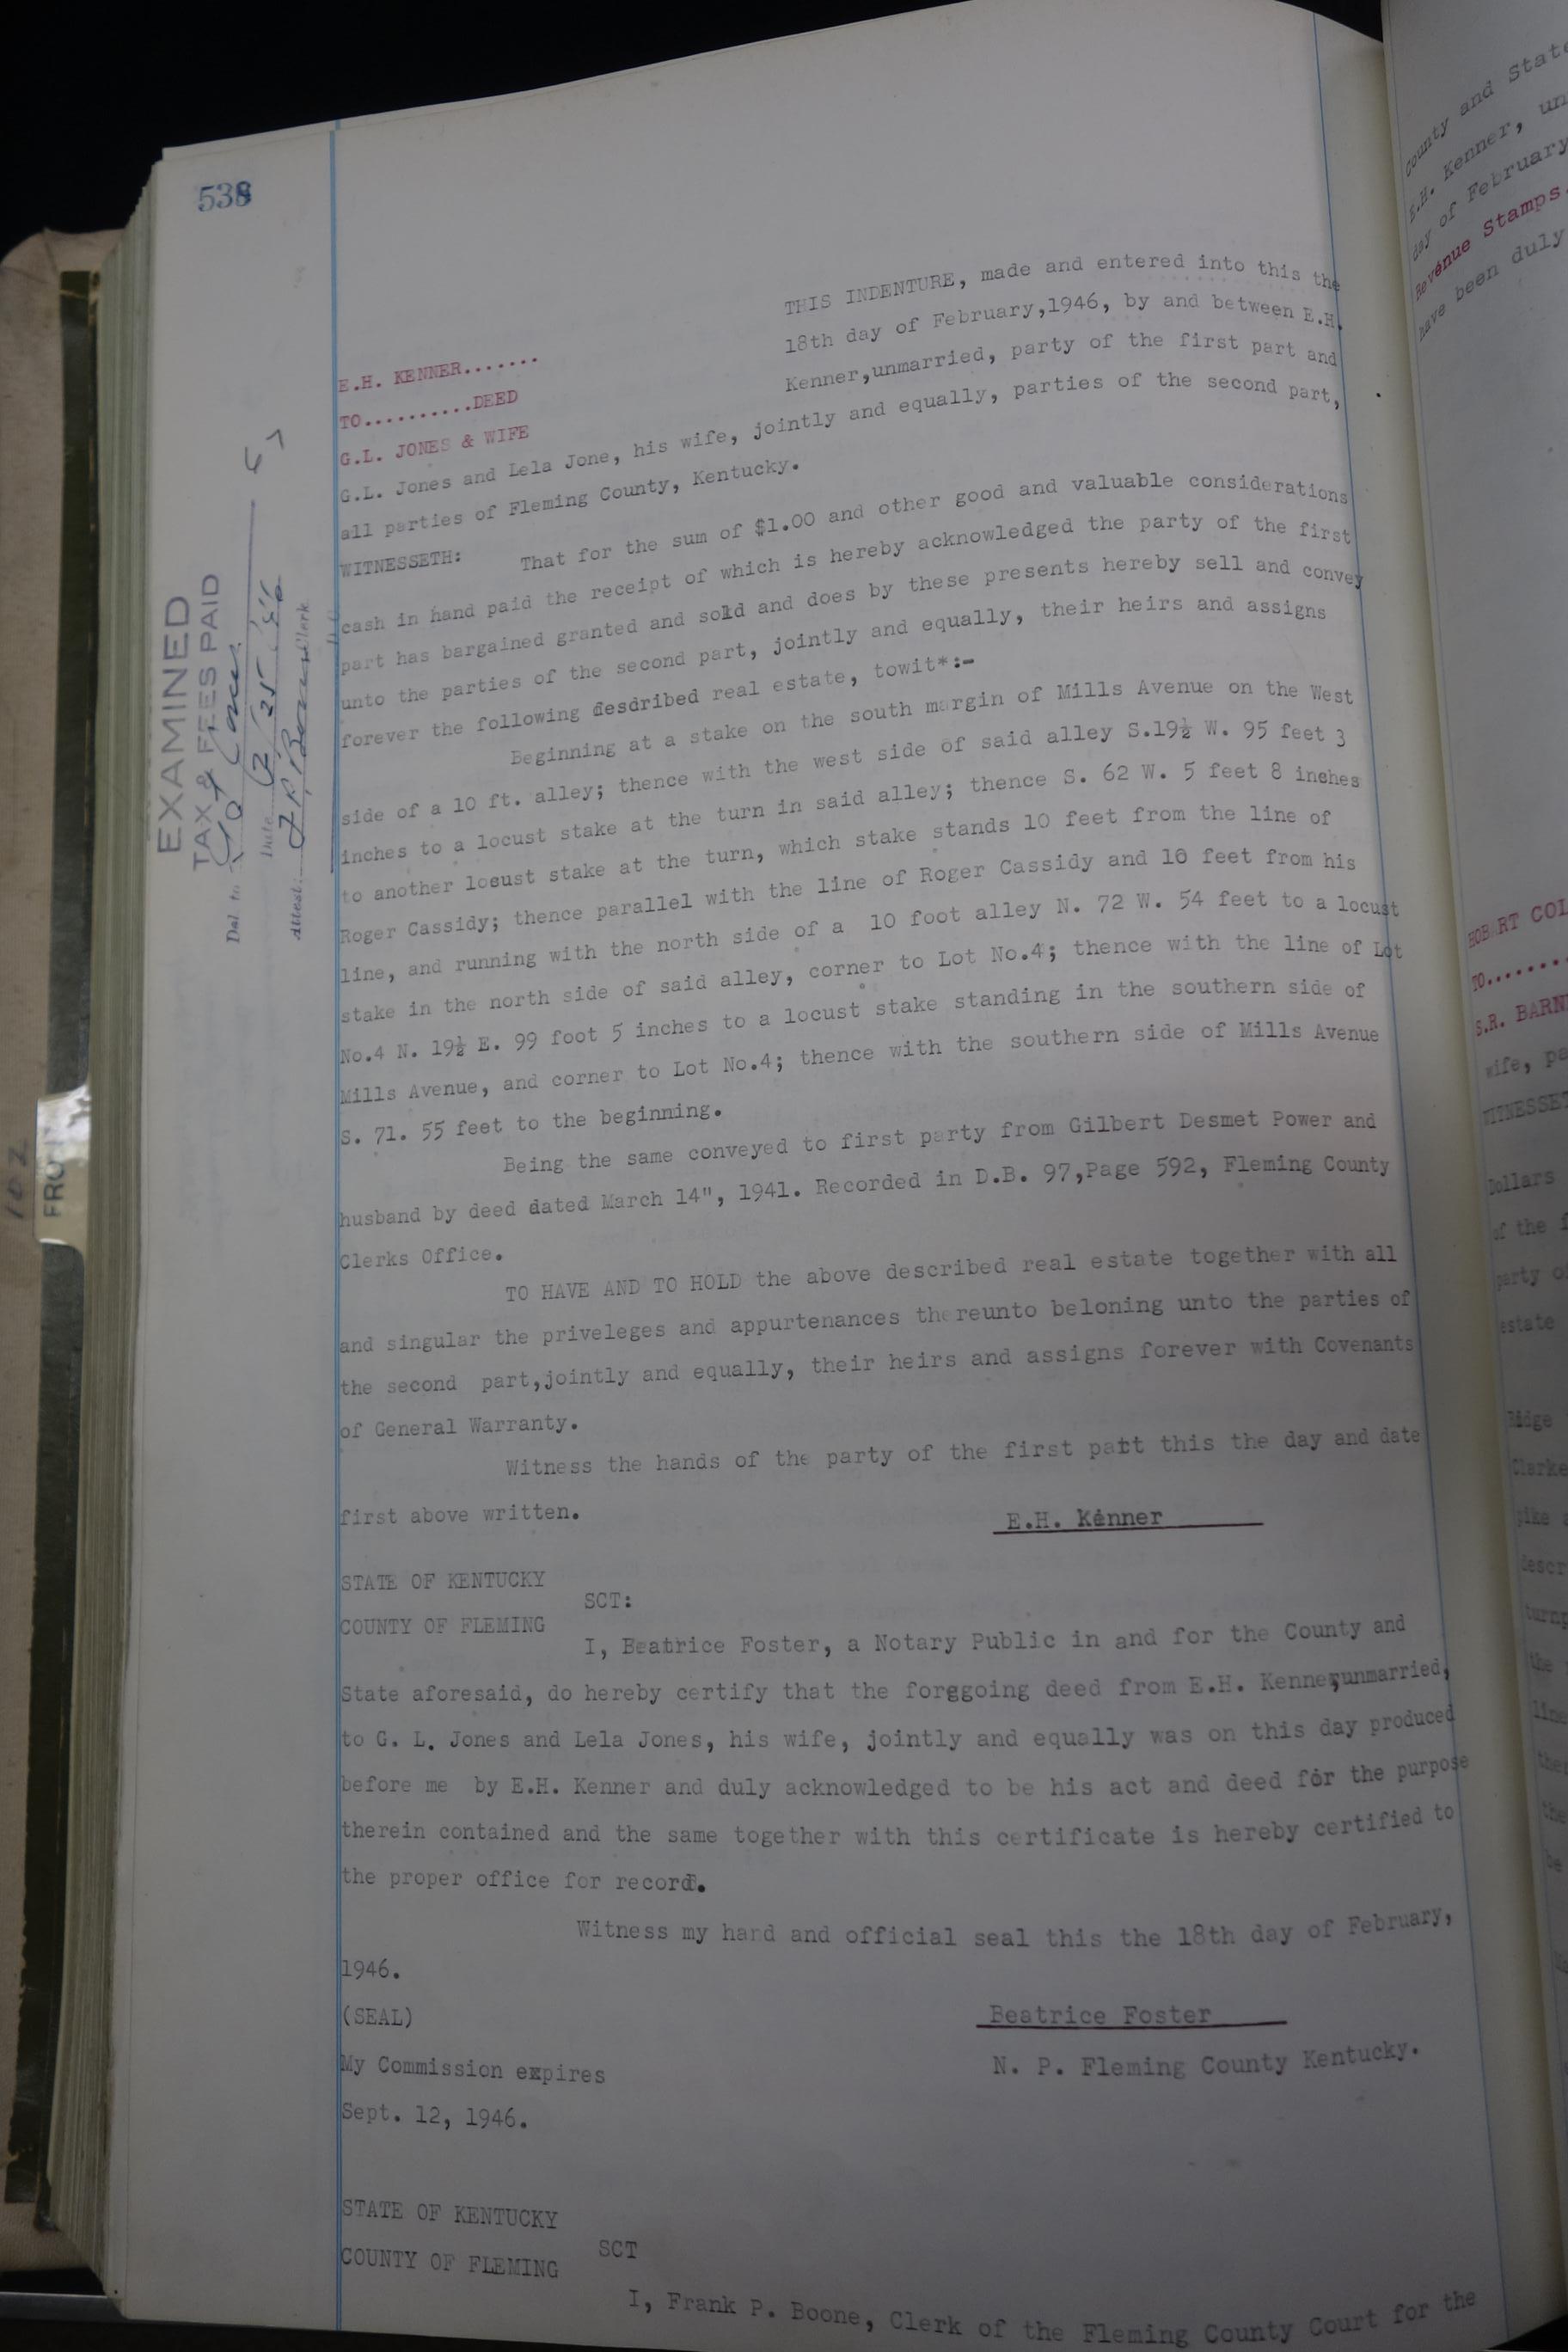 538
THIS INDENTURE, made and entered into this the
18th day of February,1946, by and between E.H.
Kenner,unmarried, party of the first part and
E.H. KENNER.......
TO..........DEED
G.L. JONES & WIFE
G.L. Jones and Lela Jone, his wife, jointly and equally, parties of the second part,
all parties of Fleming County, Kentucky.
WITNESSETH: That for the sum of $1.00 and other good and valuable considerations
cash in hand paid the receipt of which is hereby acknowledged the party of the first
part has bargained granted and sold and does by these presents hereby sell and convey
unto the parties of the second part, jointly and equally, their heirs and assigns
forever the following desdribed real estate, towit*:-
Beginning at a stake on the south margin of Mills Avenue on the West
side of a 10 ft. alley; thence with the west side of said alley S.19½ W. 95 feet 3
inches to a locust stake at the turn in said alley; thence S. 62 W. 5 feet 8 inches
to another locust stake at the turn, which stake stands 10 feet from the line of
Roger Cassidy; thence parallel with the line of Roger Cassidy and 10 feet from his
line, and running with the north side of a 10 foot alley N. 72 W. 54 feet to a locust
stake in the north side of said alley, corner to Lot No.4; thence with the line of Lot
No.4 N. 19½ E. 99 foot 5 inches to a locust stake standing in the southern side of
Mills Avenue, and corner to Lot No.4; thence with the southern side of Mills Avenue
S. 71. 55 feet to the beginning.
Being the same conveyed to first party from Gilbert Desmet Power and
husband by deed dated March 14", 1941. Recorded in D.B. 97,Page 592, Fleming County
Clerks Office.
TO HAVE AND TO HOLD the above described real estate together with all
and singular the priveleges and appurtenances thereunto beloning unto the parties of
the second part,jointly and equally, their heirs and assigns forever with Covenants
of General Warranty.
Witness the hands of the party of the first part this the day and date
first above written.
E.H. Kenner
STATE OF KENTUCKY
SCT:
COUNTY OF FLEMING
I, Beatrice Foster, a Notary Public in and for the County and
State aforesaid, do hereby certify that the foreggoing deed from E.H. Kenner,unmarried,
to G. L. Jones and Lela Jones, his wife, jointly and equally was on this day produced
before me by E.H. Kenner and duly acknowledged to be his act and deed for the purpose
therein contained and the same together with this certificate is hereby certified to
the proper office for record.
Witness my hand and official seal this the 18th day of February,
1946.
(SEAL)
Beatrice Foster
My Commission expires
N. P. Fleming County Kentucky.
Sept. 12, 1946.
STATE OF KENTUCKY
SCT
COUNTY OF FLEMING
I, Frank P. Boone, Clerk of the Fleming County Court for the
EXAMINED
TAX & FEES PAID
Del. to
Date
Attest: Clerk
102
FRO
County and State
E.H. Kenner, un
day of February
Revenue Stamps.
have been duly
HOBART COL
TO........
S.R. BARN
wife, pa
WITNESSET
Dollars
of the f
party of
estate
Ridge
Clarke
pike a
descr
turnp
the
line
the
be